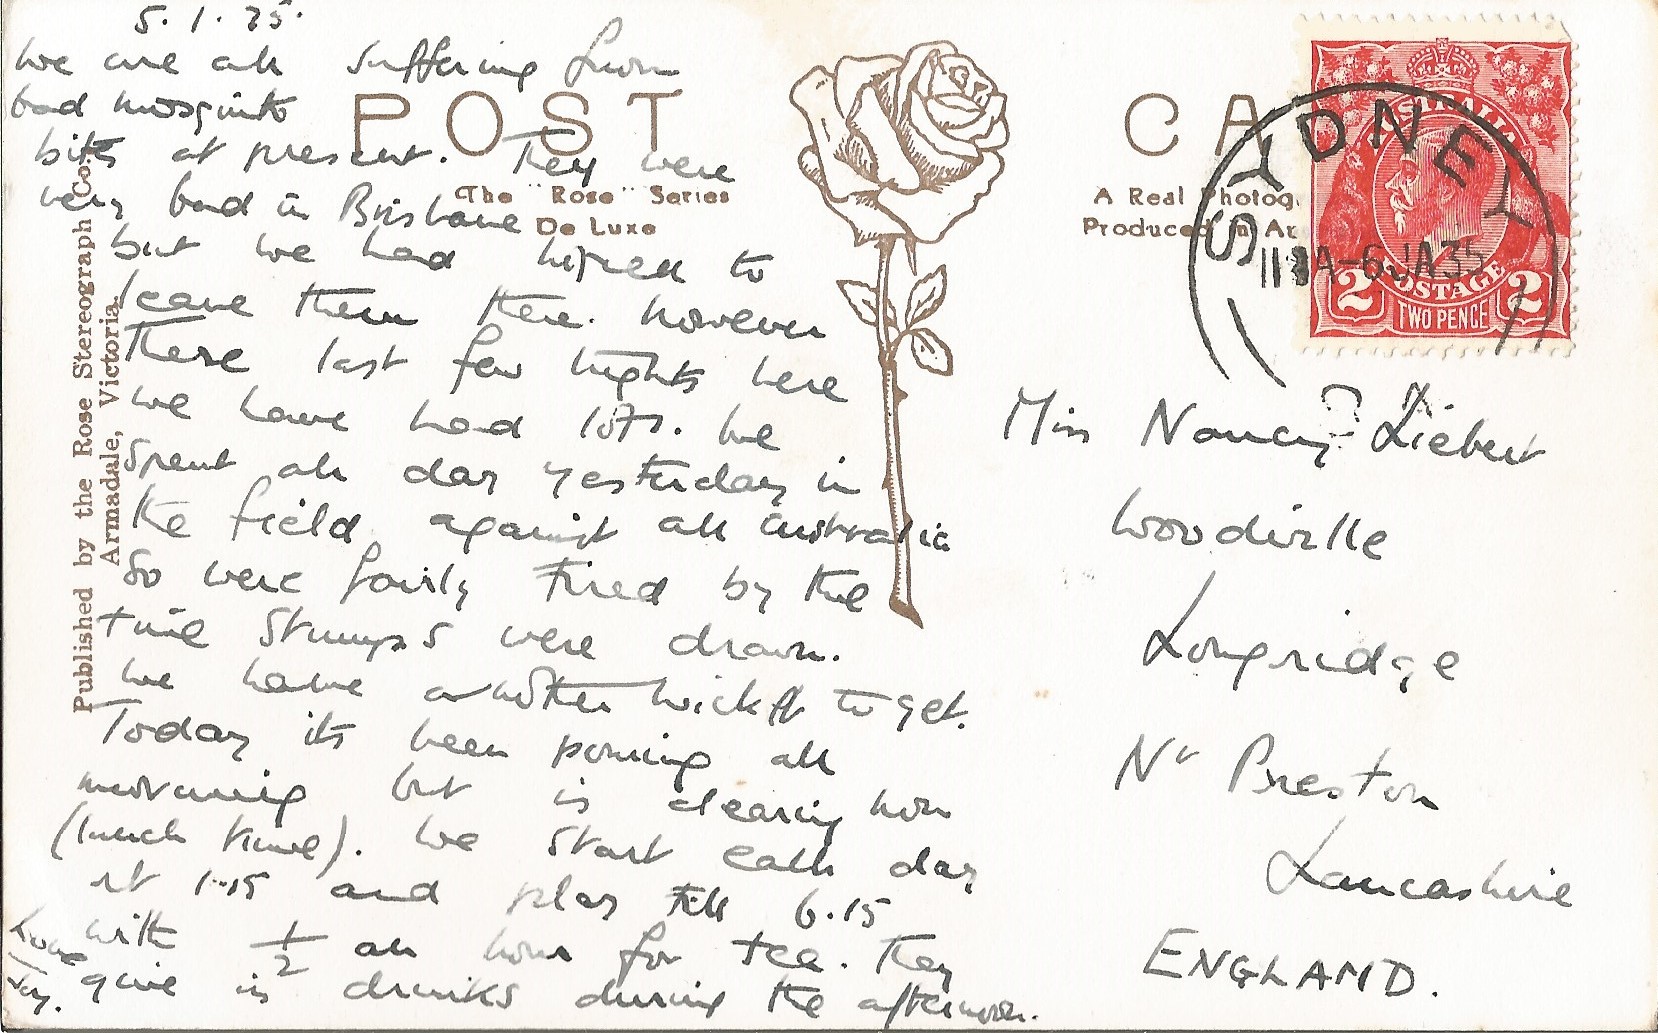 5.1.35.
We are all suffering from
bad mosquito
bites at present. They were
very bad in Brisbane
but we had hoped to
leave them there. However
these last few nights here
we have had lots. We
spent all day yesterday in
the field against all Australia
so were fairly tired by the
time stumps were drawn.
We have another wicket to get.
Today its been pouring all
morning but is clearing now
(lunch time). We start each day
at 1.15 and play till 6.15
with 1/2 an hour for tea. They
give us drinks during the afternoon.
Love
Joy.
POST CA
The "Rose" Series
De Luxe
A Real Photog
Produced in Ar
Published by the Rose Stereograph Co.
Armadale, Victoria.
SYDNEY
-6 JA 35
AUSTRALIA
POSTAGE
2 TWO PENCE 2
Miss Nancy Liebert
Woodville
Longridge
Nr Preston
Lancashire
ENGLAND.